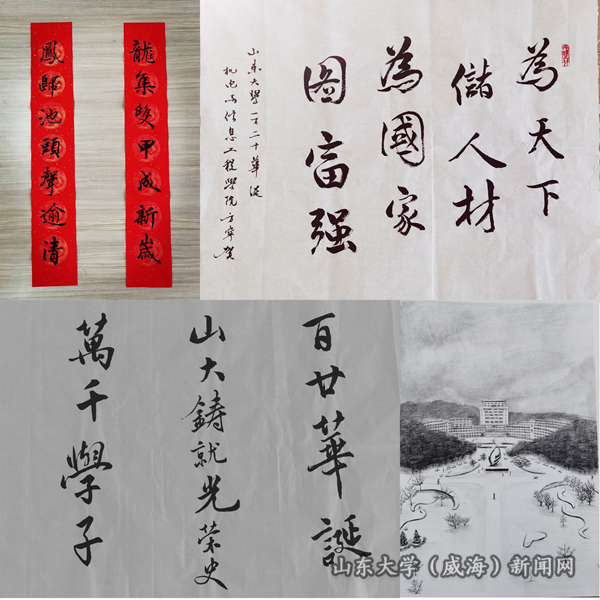 龍集雙甲成新歲
鳳歸池頭聲逾清
為天下
儲人材
為國家
圖富强
山东大學一百二十華诞
机电与信息工程學院方
百廿華誕
山大鑄就光荣史
萬千學子
山东大学（威海）新闻网